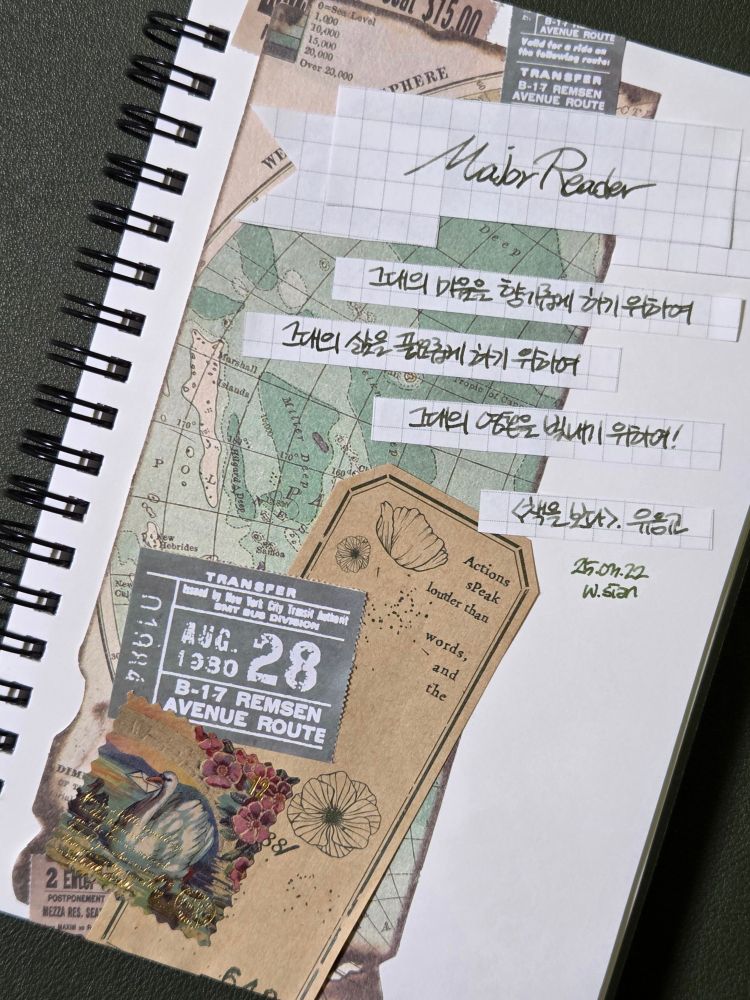 $75.00
0=Sea Level
1,000
10,000
15,000
20,000
Over 20,000
B-17 REMSEN
AVENUE ROUTE
Valid for a ride on
the following route:
TRANSFER
B-17 REMSEN
AVENUE ROUTE
Major Reader
Deep
그대의 마음을 향기롭게 하기 위하여
그대의 삶을 풍요롭게 하기 위하여
Marshall
Islands
Tropic of
그대의 영혼을 빛내기 위하여!
170°
160°
150°
<책을 보다>.
25.04.22
w.stan
New
Hebrides
Samoa
Actions
sPeak
louder than
words,
and
the
TRANSFER
Issued by New York City Transit
BMT BUS DIVISION
AUG. 28
1930
B-17 REMSEN
AVENUE ROUTE
2
POSTPONEMENT
MEZZA RES. SEA